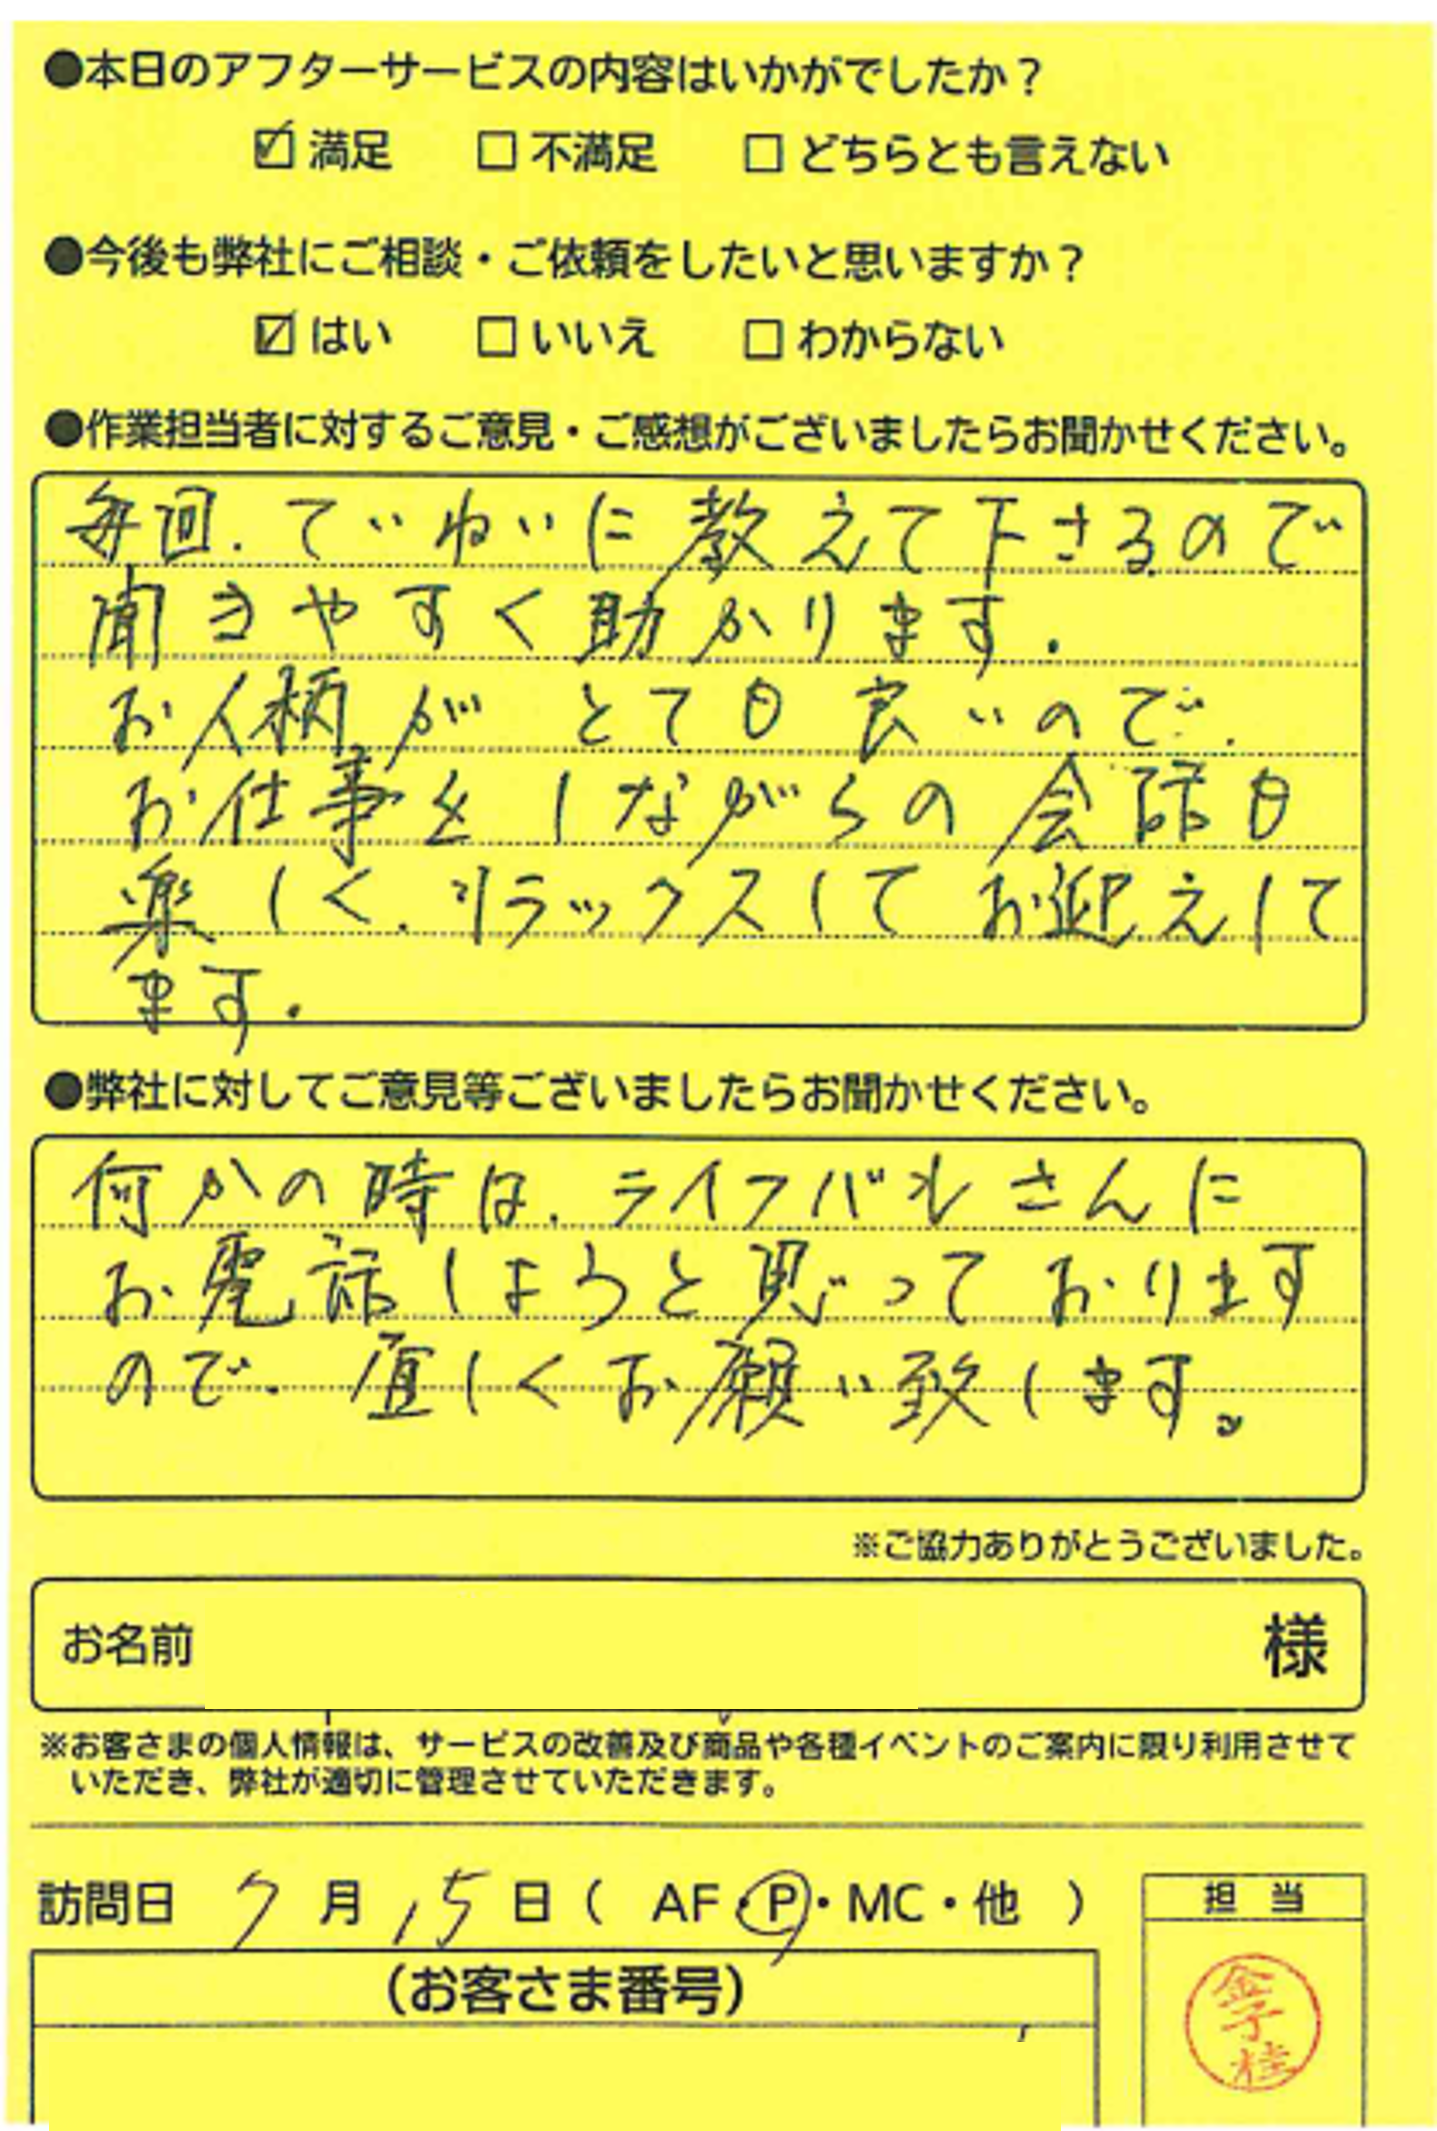 ●本日のアフターサービスの内容はいかがでしたか？
☑満足 □不満足 □どちらとも言えない
●今後も弊社にご相談・ご依頼をしたいと思いますか？
☑はい □いいえ □わからない
●作業担当者に対するご意見・ご感想がございましたらお聞かせください。
毎回、ていねいに教えて下さるので
聞きやすく助かります。
お人柄がとても良いので、
お仕事をしながらの会話も
楽しく、リラックスしてお迎えして
ます。
●弊社に対してご意見等ございましたらお聞かせください。
何かの時は、ライフバルさんに
お電話しようと思っております
ので、宜しくお願い致します。
※ご協力ありがとうございました。
お名前 様
※お客さまの個人情報は、サービスの改善及び商品や各種イベントのご案内に限り利用させて
いただき、弊社が適切に管理させていただきます。
訪問日 7月15日（ AF・P・MC・他 ）
担当
（お客さま番号）
金子桂